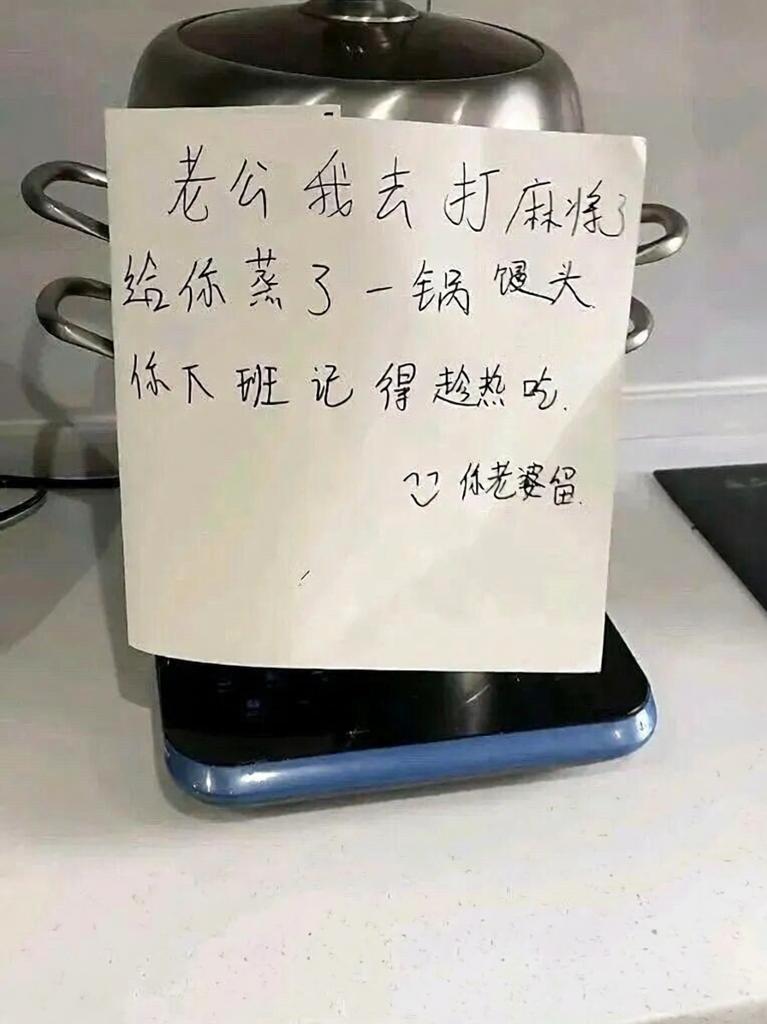 老公我去打麻将了
给你蒸了一锅馒头
你下班记得趁热吃.
你老婆留.